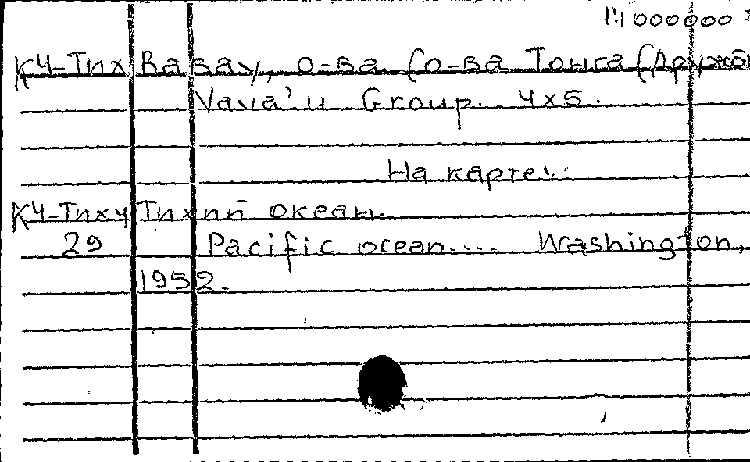 1:1000000
К4-Тих Вавау, о-ва (о-ва Тонга (Дружб
Vava'u Group. 4x5.
На карте:
К4-Тиху Тихий океан.
29 Pacific ocean.... Washington,
1952.